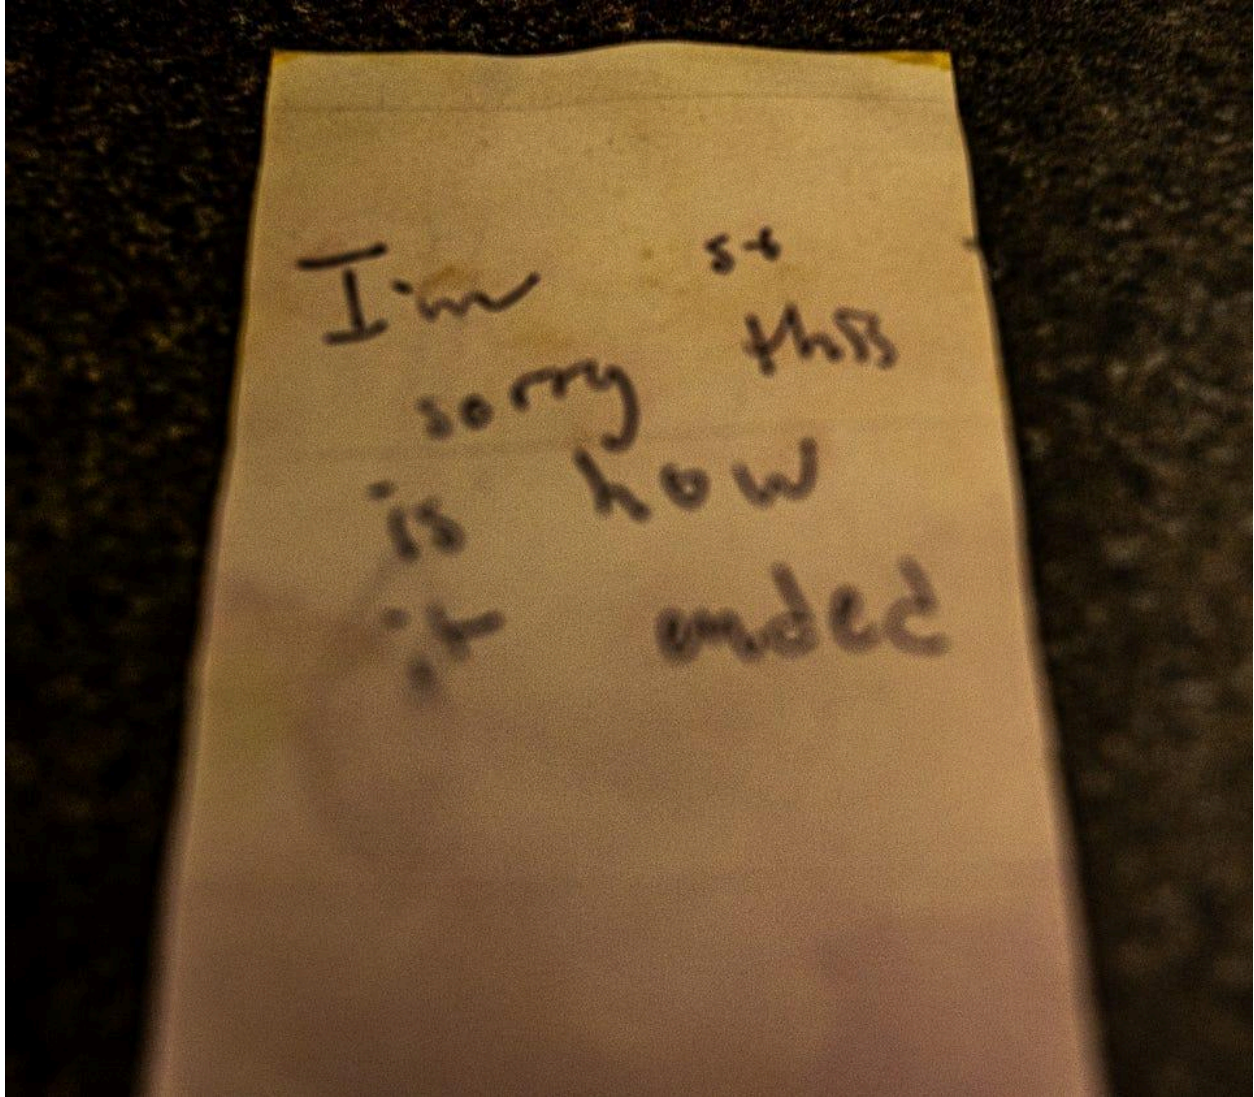 I'm so
sorry this
is how
it ended